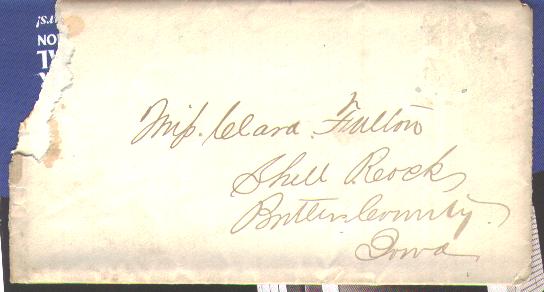 Miss. Clara. Fulton
Shell Rock
Butler County
Iowa